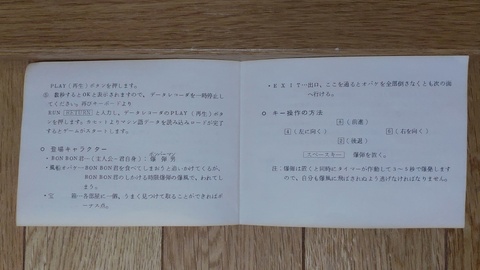 PLAY(再生)ボタンを押します。
⑤ 数秒するとOKと表示されますので、データレコーダを一時停止し
てください。再びキーボードより
RUN RETURN と入力し、データレコーダのPLAY(再生)ボタ
ンを押します。カセットよりマシン語データを読み込みロードが完了
するとゲームがスタートします。
○ 登場キャラクター
・BON BON君…(主人公＝君自身) 爆弾男
・風船オバケ…BON BON君を食べてしまおうと追いかけてくるが、
BON BON君のしかける時限爆弾の爆風で、われてし
まう。
・宝 箱…各部屋に一個、うまく見つけて取ることができればボ
ーナス点。
・EXIT…出口。ここを通るとオバケを全部倒さなくとも次の面
へ行ける。
○ キー操作の方法
8 (前進)
4 (左に向く) 6 (右を向く)
2 (後退)
スペースキー 爆弾を置く。
注. 爆弾は置くと同時にタイマーが作動して3～5秒で爆発します
ので、自分も爆風に飛ばされぬよう逃げなければなりません。